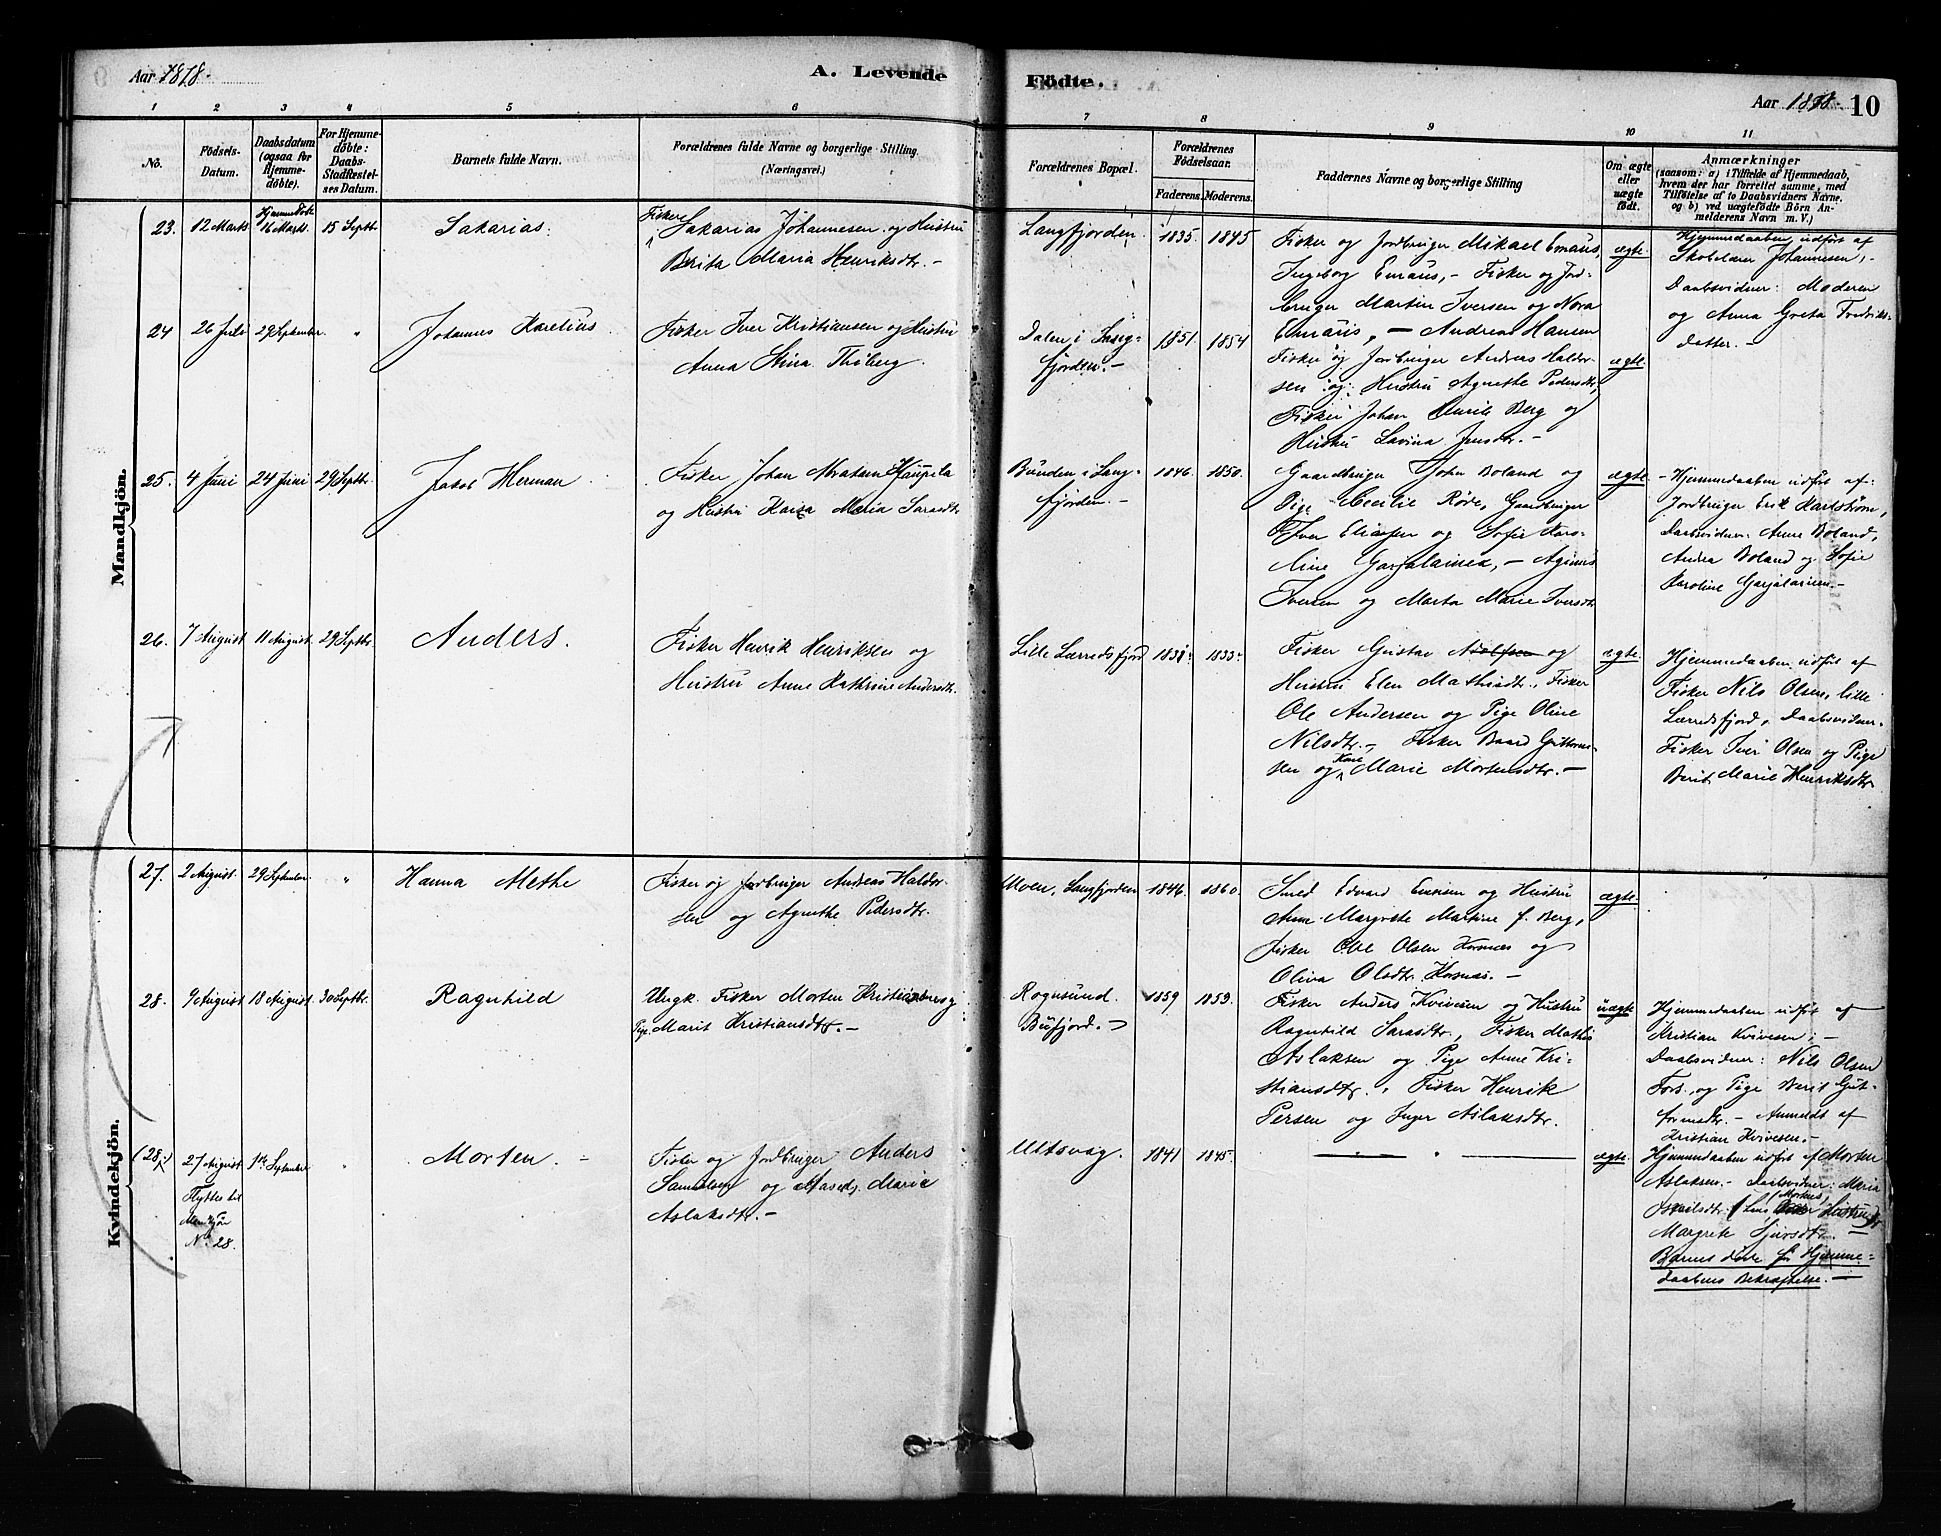 Aar 1878.
A. Levende
Födte.
Aar 1878. 10
1 2 3 4 5 6 7 8 9 10 11
No.
Födsels-
Datum.
Daabsdatum
(ogsaa for
Hjemme-
döbte).
For Hjemme-
döbte:
Daabs-
Stadfæstel-
ses Datum.
Barnets fulde Navn.
Forældrenes fulde Navne og borgerlige Stilling.
(Næringsvei.)
Forældrenes Bopæl.
Forældrenes
Födselsaar.
Faderens. Moderens.
Faddernes Navne og borgerlige Stilling
Om ægte
eller
uægte
födt.
Anmærkninger
(saasom: a) i Tilfælde af Hjemmedaab,
hvem der har forrettet samme, med
Tilföielse af to Daabsvidners Navne.
og b) ved uægtefödte Börn An-
melderens Navn m. V.)
Mandkjön.
23.
12 Marts
Hjemmedøbt
16 Marts.
15 Septbr.
Sakarias.
Fisker
Sakarias Johannesen og Hustru
Berita Maria Henriksdtr. -
Langfjorden.
1835. 1845
Fisker og Jordbruger Mikael Emaus,
Ingeborg Emaus, - Fisker og Jord-
bruger Martin Iversen og Nora
Emaus, - Andrea Hansen
ægte.
Hjemmedaaben udført af
Skolelærer Johannesen, -
Daabsvidner: Moderen
og Anna Greta Fredriks-
datter. -
24
26 Juli
29 September
"
Johannes Karelius
Fisker Iver Kristiansen og Hustru
Anna Stina Thaberg.
Dalen i Lang-
fjorden. -
1851. 1854
Fisker og Jordbruger Andreas Haldor-
sen og Hustru Agnethe Pedersdtr,
Fisker Johan Berg og
Hustru Lavina Jensdtr. -
ægte.
25.
4 Juni
24 Juni
29 Septbr.
Jakob Herman
Fisker Johan
og Hustru Kaisa Maria
Bunden i Lang-
fjorden. -
1846. 1850.
Gaardbruger John Boland og
Pige Cecilie Røde, Gaardbruger
Iver Eliassen og Sofie Karo-
line
Iversen og Marta Marie Iversdtr
ægte.
- Hjemmedaaben udført af:
Jordbruger Erik Karlstrøm,
Daabsvidner: Anne Boland,
Andrea Boland og Sofie
Karoline
26.
7 August
11 August.
29 Septbr
Anders.
Fisker Henrik Henriksen og
Hustru Anne Kathrine Andersdtr.
Lille Lerredsfjord
1833.
Fisker Gustav Adolfsen og
Hustru Elen Mathisdtr., Fisker
Ole Andersen og Pige Oline
Nilsdtr. - Fisker Baard Guttorm-
sen og Kone Marie Mortensdtr. -
ægte.
Hjemmedaaben udført af
Fisker Nils Olsen, lille
Lerredsfjord, Daabsvidner:
Fisker Iver Olsen og Pige
Berit Marie Henriksdtr
Kvindekjön.
27.
2 August.
29 September
"
Hanna Methe
Fisker og Jordbruger Andreas Haldor-
sen og Agnethe Pedersdtr.
Moen, Langfjorden
1846. 1860.
Smed Edvard og Hustru
Ane Margrete Martine f. Berg,
Fisker Ole Olsen Kornæs og
Oliva Olsdtr. Kornæs. -
ægte.
28.
9 August
18 August.
30 Septbr.
Ragnhild
Ungk. Fisker Morten Kristiansen og
Pige Marit Kristiansdtr. -
Rognsund.
Bufjord. -
1859 1859.
Fisker Anders Kvivesen og Hustru
Ragnhild Sarasdtr., Fisker Mathis
Aslaksen og Pige Anne Kri-
stiansdtr., Fisker Henrik
Persen og Inger Aslaksdtr.
uægte
Hjemmedaaben udført af
Kristian Kvivesen; -
Daabsvidner: Nils Olsen
Fors. og Pige Berit Gut-
tormsdtr. - Anmeldt af
Kristian Kvivesen. -
(28.)
27 August
1ste September
"
Flyttes til
Mandkjøn
No 28.
Morten. -
Fisker og Jordbruger Anders
Samuelsen og Maria
Aslaksdtr. -
Ultsvag.
1841 1845.
"
ægte.
Hjemmedaaben udført af Morten
Aslaksen. - Daabsvidner: Maria
Hustru
Margrete Sjursdtr. -
Barnet døde før Hjemme-
daabens Bekræftelse. -